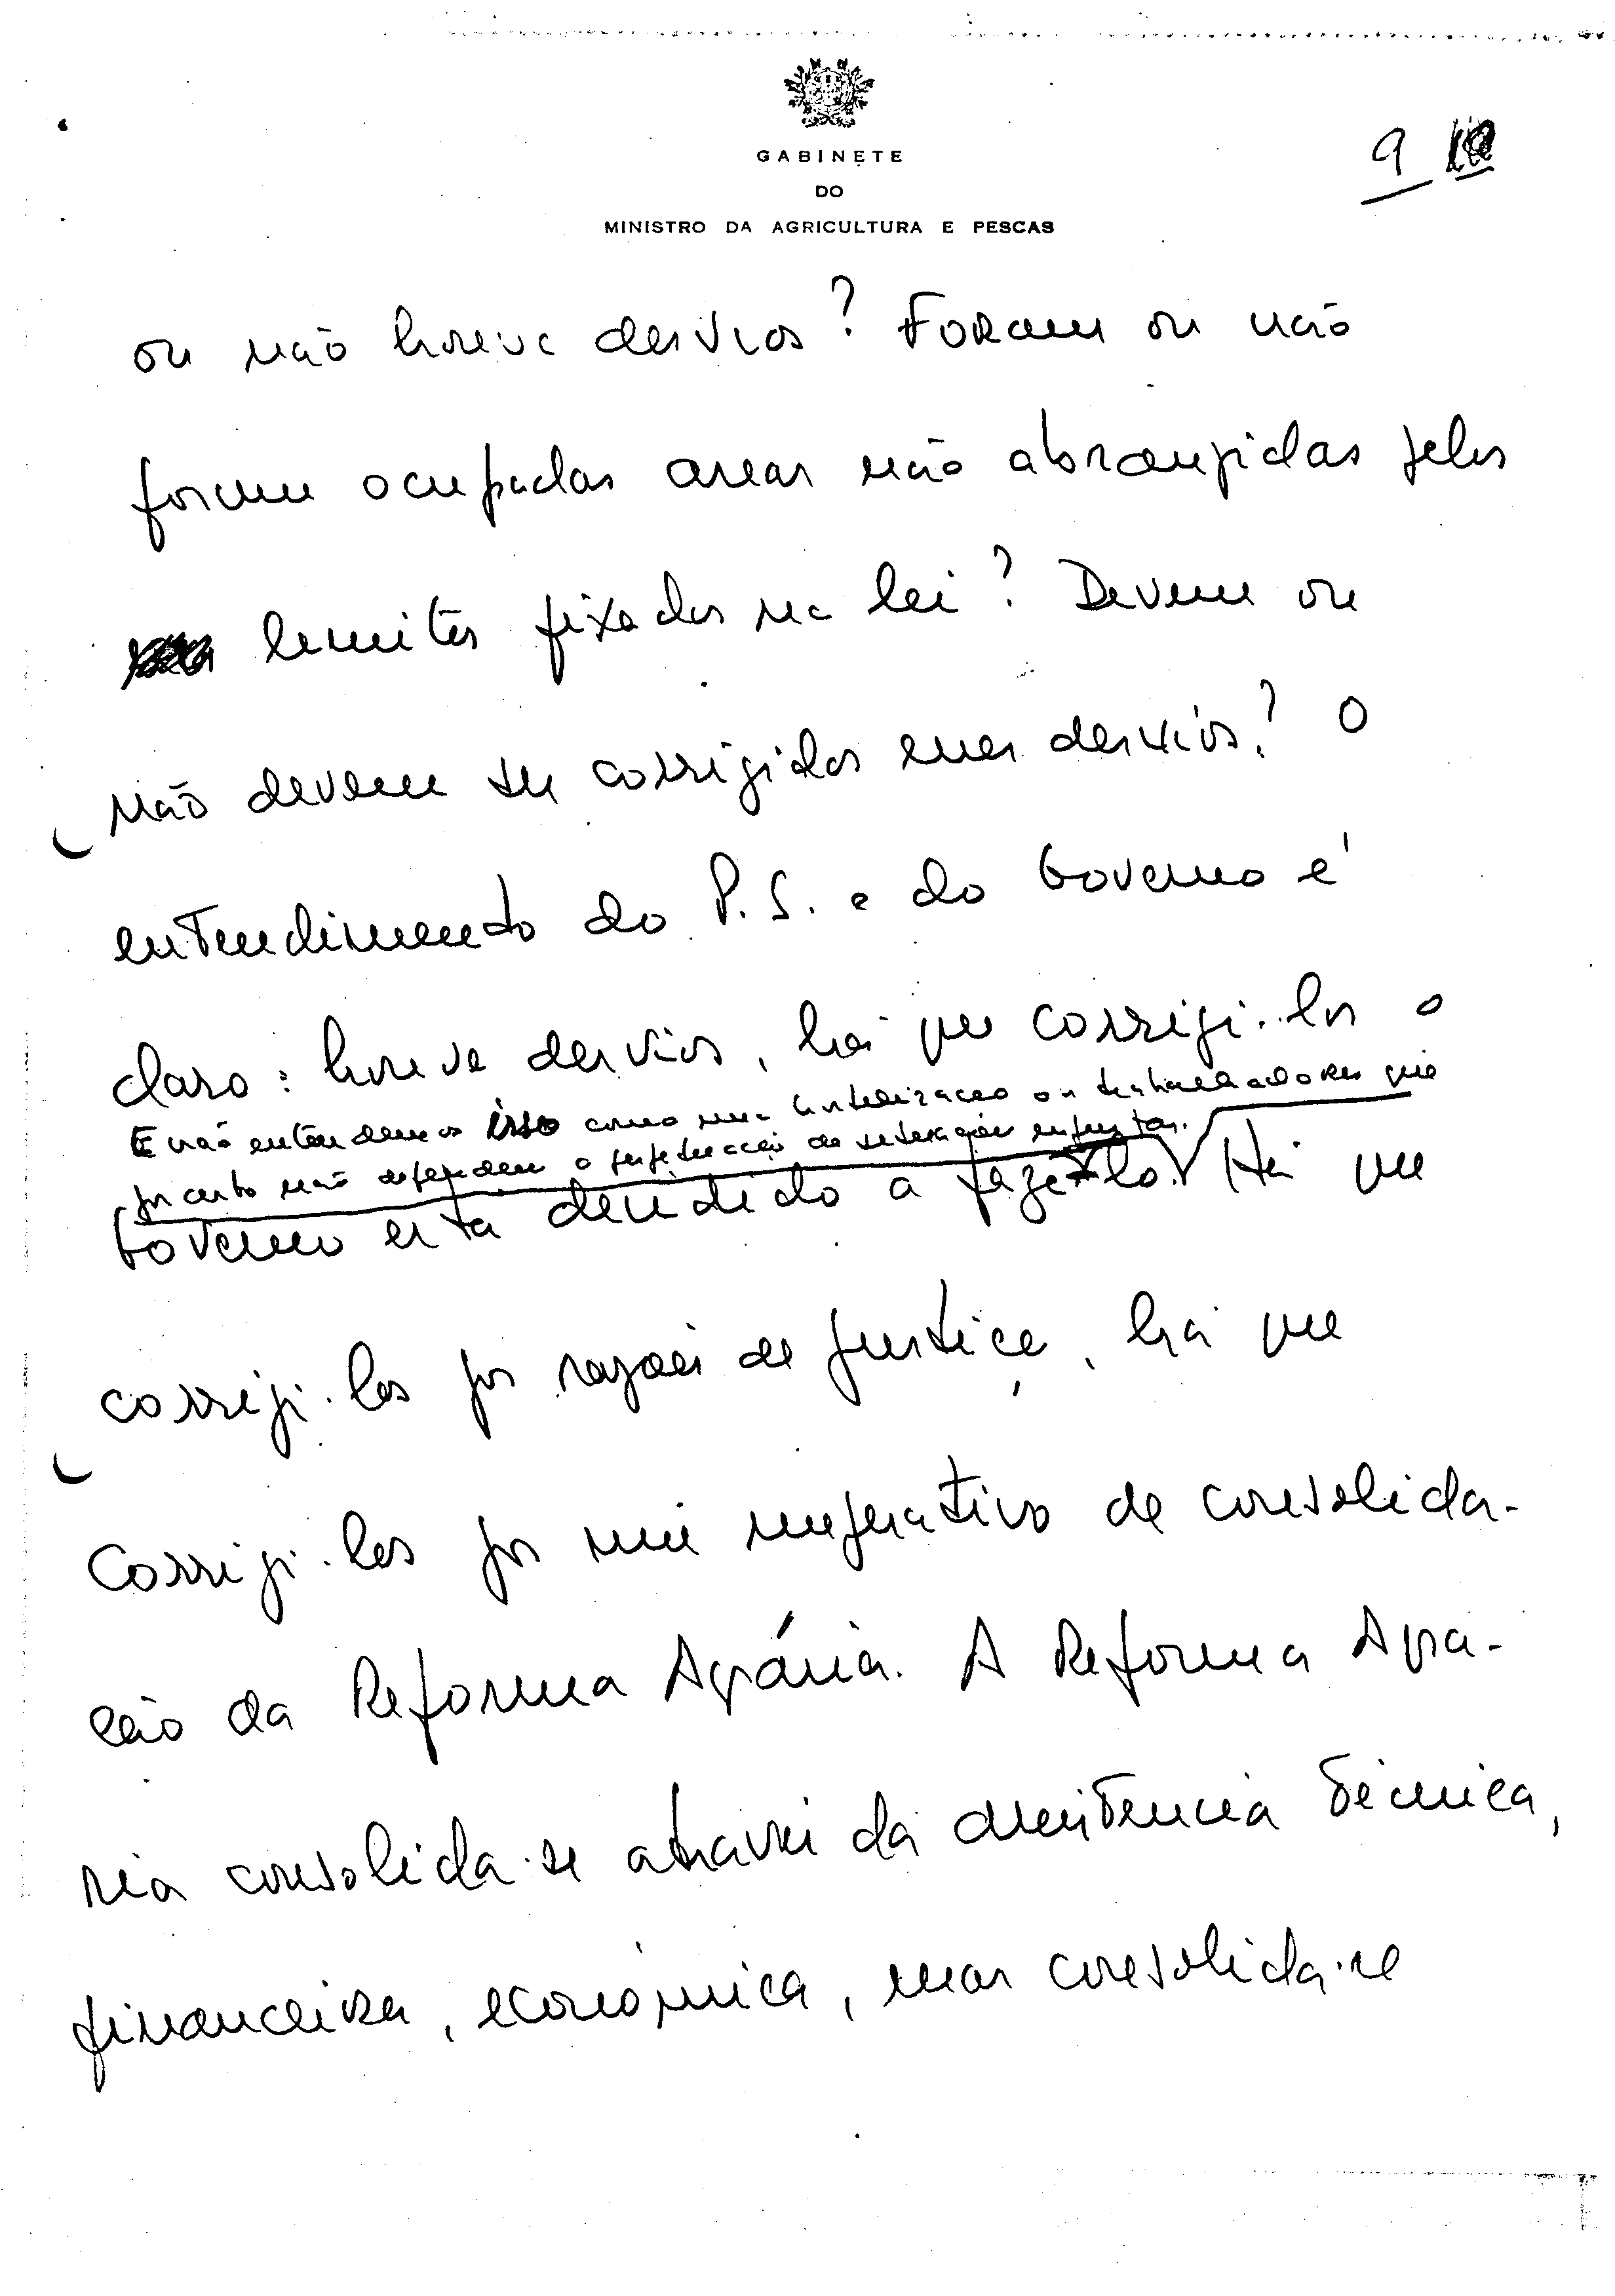 GABINETE
DO
MINISTRO DA AGRICULTURA E PESCAS
9
ou não houve desvios? Foram ou não
foram ocupadas areas não abrangidas pelos
limites fixados na lei? Devem ou
não devem ser corrigidos esses desvios? O
entendimento do P.S. e do Governo é
claro: houve desvios, há que corrigi-los o
E não entendemos isso como uma hostilização ou trabalhadores que
por certo não defendem a perpetuação de situações injustas.
Governo está decidido a fazê-lo. Há que
corrigi-los por razões de justiça, há que
corrigi-los por um imperativo de consolida-
ção da Reforma Agrária. A Reforma Agrá-
ria consolida-se através da assistência técnica,
financeira, económica, mas consolida-se